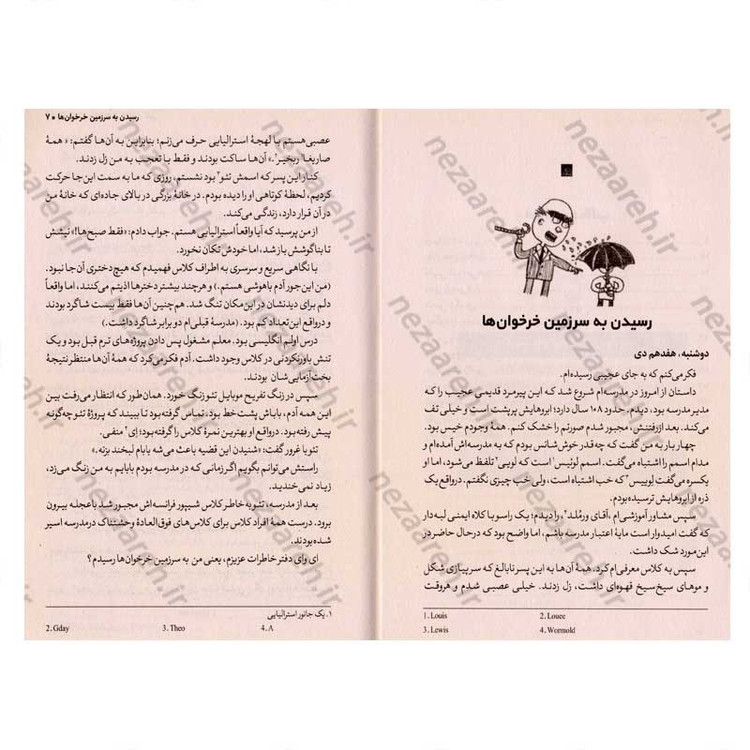 رسیدن به سرزمین خرخوان‌ها
دوشنبه، هفدهم دی
فکر می‌کنم که به جای عجیبی رسیده‌ام.
داستان از امروز در مدرسه‌ام شروع شد که این پیرمرد قدیمی عجیب را که
مدیر مدرسه بود، دیدم. حدود ۱۰۸ سال دارد؛ ابروهایش پرپشت است و خیلی تف
می‌کند. بعد از رفتنش، مجبور شدم صورتم را خشک کنم. همهٔ وجودم خیس بود.
چهار بار به من گفت که چه‌قدر خوش‌شانس بودم که به مدرسه‌اش آمده‌ام و
مدام اسمم را اشتباه می‌گفت. اسمم لوئیس۱ است که لویی۲ تلفظ می‌شود، اما او
یکسره می‌گفت لوییس۳ که خب اشتباه است، ولی خب چیزی نگفتم. درواقع یک
ذره از ابروهایش ترسیده بودم.
سپس مشاور آموزشی‌ام، آقای ورمُلد۴، را دیدم؛ یک راسو با کلاه ایمنی لبه‌دار
که گفت امیدوار است مایهٔ اعتبار مدرسه باشم، اما واضح بود که درحال حاضر در
این مورد شک داشت.
سپس به کلاس معرفی‌ام کرد. همهٔ آن‌ها به این پسر نابالغ که سر پیازی شکل
و موهای سیخ‌سیخ قهوه‌ای داشت، زل زدند. خیلی عصبی شدم و هروقت
1. Louis
2. Louee
3. Lewis
4. Wormold
رسیدن به سرزمین خرخوان‌ها • ۷
عصبی هستم با لهجهٔ استرالیایی حرف می‌زنم؛ بنابراین به آن‌ها گفتم: «همهٔ
صاریغا۱ ربخیر۲.» آن‌ها ساکت بودند و فقط با تعجب به من زل زدند.
کنار این پسر که اسمش تئو۳ بود نشستم، روزی که ما به سمت این‌جا حرکت
کردیم، لحظهٔ کوتاهی او را دیده بودم. در خانهٔ بزرگی در بالای جاده‌ای که خانهٔ من
در آن قرار دارد، زندگی می‌کند.
از من پرسید که آیا واقعاً استرالیایی هستم. جواب دادم: «فقط صبح‌ها!» نیشش
تا بناگوشش باز شد، اما خودش تکان نخورد.
با نگاهی سریع و سرسری به اطراف کلاس فهمیدم که هیچ دختری آن‌جا نبود.
(من این‌جور آدم باهوشی هستم.) و هرچند بیشتر دخترها اذیتم می‌کنند، اما واقعاً
دلم برای دیدنشان در این مکان تنگ شد. هم‌چنین آن‌ها فقط بیست شاگرد بودند
و درواقع این تعداد کم بود. (مدرسهٔ قبلی‌ام دو برابر شاگرد داشت.)
درس اولم انگلیسی بود. معلم مشغول پس دادن پروژه‌های ترم قبل بود و یک
تنش باورنکردنی در کلاس وجود داشت. آدم فکر می‌کرد که همهٔ آن‌ها منتظر نتیجهٔ
بخت‌آزمایی‌شان بودند.
سپس در زنگ تفریح موبایل تئو زنگ خورد. همان‌طور که انتظار می‌رفت بین
این همه آدم، باباش پشت خط بود، تماس گرفته بود تا ببیند که پروژهٔ تئو چه‌گونه
پیش رفته بود. درواقع او بهترین نمرهٔ کلاس را گرفته بود؛ اِی۴ منفی.
تئو با غرور گفت: «شنیدن این قضیه باعث می‌شه بابام لبخند بزنه.»
راستش می‌توانم بگویم اگر زمانی که در مدرسه بودم بابایم به من زنگ می‌زد،
زیاد نمی‌خندید.
بعد از مدرسه، تئو به خاطر کلاس شیپور فرانسه‌اش مجبور شد با عجله بیرون
برود. درست همهٔ افراد کلاس برای کلاس‌های فوق‌العادهٔ وحشتناک در مدرسه اسیر
شده بودند.
ای وای دفتر خاطرات عزیزم، یعنی من به سرزمین خرخوان‌ها رسیدم؟
۱. یک جانور استرالیایی
2. Gday
3. Theo
4. A
nezaareh.ir